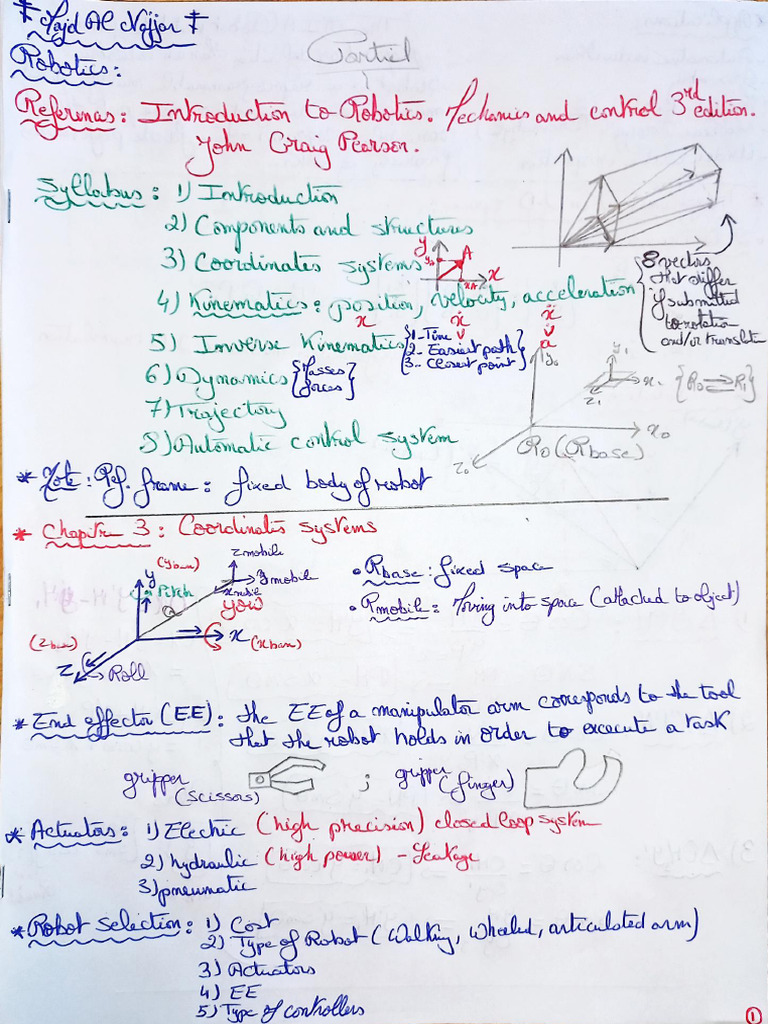 Majd Al Najjar
Partiel
Robotics:
References: Introduction to Robotics. Mechanics and control 3rd edition.
John Craig Pearson.
Syllabus: 1) Introduction
2) Components and structures
3) Coordinates systems
y
yA
A
xA
x
8 vectors
that differ
if submitted
to rotation
and/or translate
4) Kinematics: position, velocity, acceleration
x ẋ ẍ
v v̇
a
5) Inverse Kinematics {1- Time
2- Easiest path}
3- Closest point
6) Dynamics {Masses
forces}
7) Trajectory
8) Automatic control system
y0
x0
z0
R0 (Rbase)
y1
x1
z1
{R0 ⇌ R1}
* Note: Ref. frame: fixed body of robot
* Chapitre 3: Coordinates systems
(ybase)
y
Pitch
zmobile
ymobile
xmobile
yow
x
(xbase)
(zbase)
z
Roll
• Rbase: fixed space
• Rmobile: Moving into space (attached to object)
* End effector (EE): the EE of a manipulator arm corresponds to the tool
that the robot holds in order to execute a task
gripper
(scissors)
;
gripper
(finger)
* Actuators: 1) Electric (high precision) closed loop system
2) hydraulic (high power) - Leakage
3) pneumatic
* Robot selection: 1) Cost
2) Type of Robot (Walking, Wheeled, articulated arm)
3) Actuators
4) EE
5) Type of controllers
1